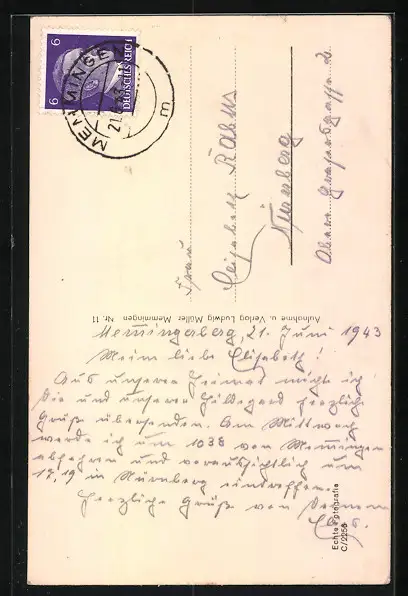 6
6
DEUTSCHES REICH
MEMMINGEN
21.
m
Frau
Elisabeth Rabus
Nürnberg
Obere
Aufnahme u. Verlag Ludwig Müller Memmingen Nr. 11
Memmingerberg, 21. Juni 1943
Meine liebe Elisabeth!
Aus unserer Heimat möchte ich
Dir und unserer Hildegard herzliche
Grüße übersenden. Am Mittwoch
werde ich um 1038 von Memmingen
abfahren und voraussichtlich um
17,19 in Nürnberg eintreffen.
Herzliche Grüße von Deinem
Echte Fotografie
C/2256